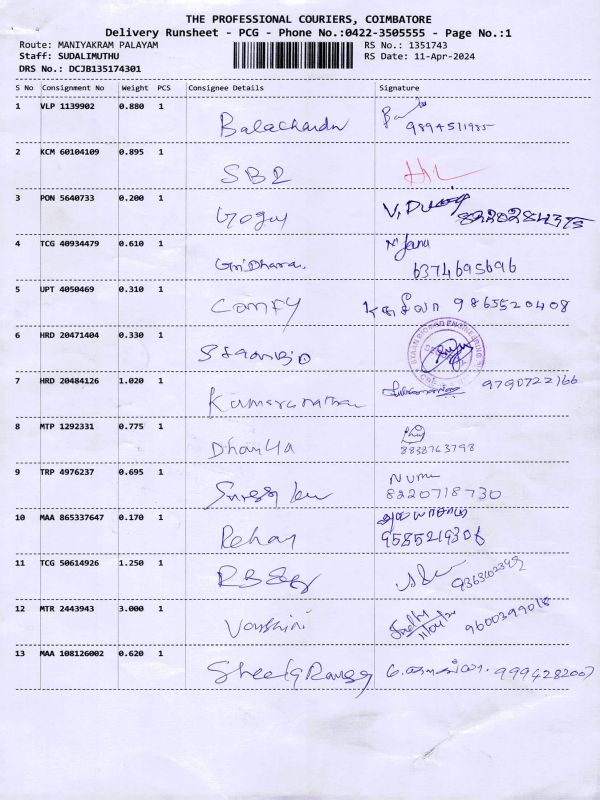 THE PROFESSIONAL COURIERS, COIMBATORE
Delivery Runsheet - PCG - Phone No.:0422-3505555 - Page No.:1
Route: MANIYAKRAM PALAYAM RS No.: 1351743
Staff: SUDALIMUTHU RS Date: 11-Apr-2024
DRS No.: DCJB135174301
S No Consignment No Weight PCS Consignee Details Signature
1 VLP 1139902 0.880 1
Balachandr 9894511985
2 KCM 60104109 0.895 1
SBR
3 PON 5640733 0.200 1
Gogy V. 8220284375
4 TCG 40934479 0.610 1
GriDhara. N Janu
6374695696
5 UPT 4050469 0.310 1
Comfy 9865520408
6 HRD 20471404 0.330 1
7 HRD 20484126 1.020 1
Kumaranathan 9790722166
8 MTP 1292331 0.775 1
Dhanya 8838763798
9 TRP 4976237 0.695 1
8220718730
10 MAA 865337647 0.170 1
Rehan 9585219306
11 TCG 50614926 1.250 1
12 MTR 2443943 3.000 1
Varshini 11/04/24 9600399018
13 MAA 108126002 0.620 1
9994282007